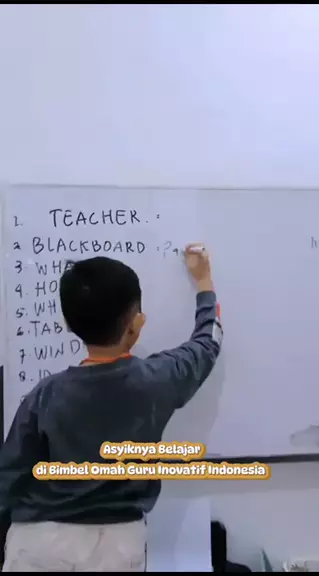 1. TEACHER. :
2. BLACKBOARD : Pa
3. WHA
4. HO
5. WH
6. TAB
7. WIND
8.
Asyiknya Belajar
di Bimbel Omah Guru Inovatif Indonesia